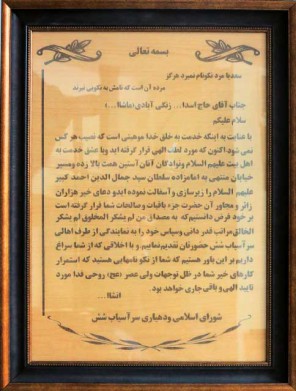 بسمه تعالی
سعدیا مرد نکونام نمیرد هرگز
مرده آن است که نامش به نکویی نبرند
جناب آقای حاج اسدا... زنگی آبادی(ماشاا...)
سلام علیکم
با عنایت به اینکه خدمت به خلق خدا موهبتی است که نصیب هر کس
نمی شود اکنون که مورد لطف الهی قرار گرفته اید وبا عشق خدمت به
اهل بیت علیهم السلام و نوادگان آنان آستین همت بالا زده ومسیر
خیابان منتهی به امامزاده سلطان سید جمال الدین احمد کبیر
علیهم السلام را زیرسازی و آسفالت نموده ایدو دعای خیر هزاران
زائر و مجاور آن حضرت جزء باقیات وصالحات شما قرار گرفته است
بر خود فرض دانستیم که به مصداق من لم یشکر المخلوق لم یشکر
الخالق مراتب قدر دانی وسپاس خود را به نمایندگی از طرف اهالی
سرآسیاب شش حضورتان تقدیم نماییم. و با اخلاقی که از شما سراغ
داریم بر این باور هستیم که شما از نکو نامهایی هستید که استمرار
کارهای خیر شما در ظل توجهات ولی عصر (عج) روحی فدا مورد
تایید الهی و باقی جاری خواهد بود.
انشاا...
شورای اسلامی ودهیاری سرآسیاب شش